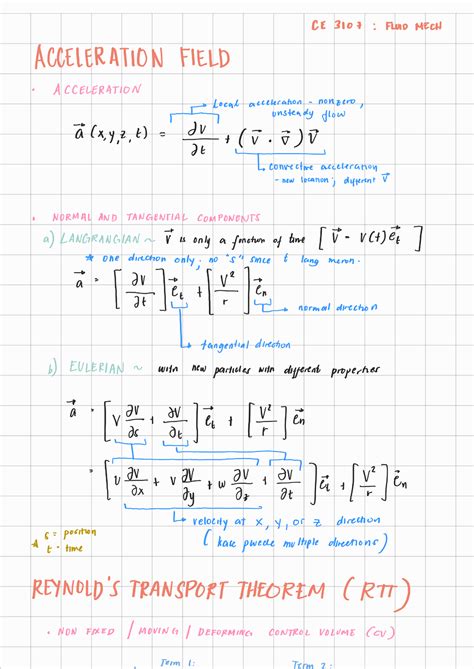 CE 3107 : FLUID MECH
ACCELERATION FIELD
• ACCELERATION
Local acceleration - nonzero,
unsteady flow
a⃗ (x,y,z,t) = ∂V/∂t + (V⃗ · ∇⃗) V⃗
convective acceleration
- new location; different V⃗
• NORMAL AND TANGENTIAL COMPONENTS
a) LANGRANGIAN ~ V⃗ is only a function of time [ V⃗ - V(t) e⃗t ]
* one direction only; no "s" since t lang meron.
a⃗ = [ ∂V/∂t ] e⃗t + [ V²/r ] e⃗n
normal direction
tangential direction
b) EULERIAN ~ with new particles with different properties
a⃗ = [ V ∂V/∂s + ∂V/∂t ] e⃗t + [ V²/r ] e⃗n
= [ u ∂V/∂x + v ∂V/∂y + w ∂V/∂z + ∂V/∂t ] e⃗t + [ V²/r ] e⃗n
velocity at x, y, or z direction
( kase pwede multiple directions )
s = position
t - time
REYNOLD'S TRANSPORT THEOREM ( RTT )
• NON FIXED / MOVING / DEFORMING CONTROL VOLUME (CV)
Term 1: Term 2: